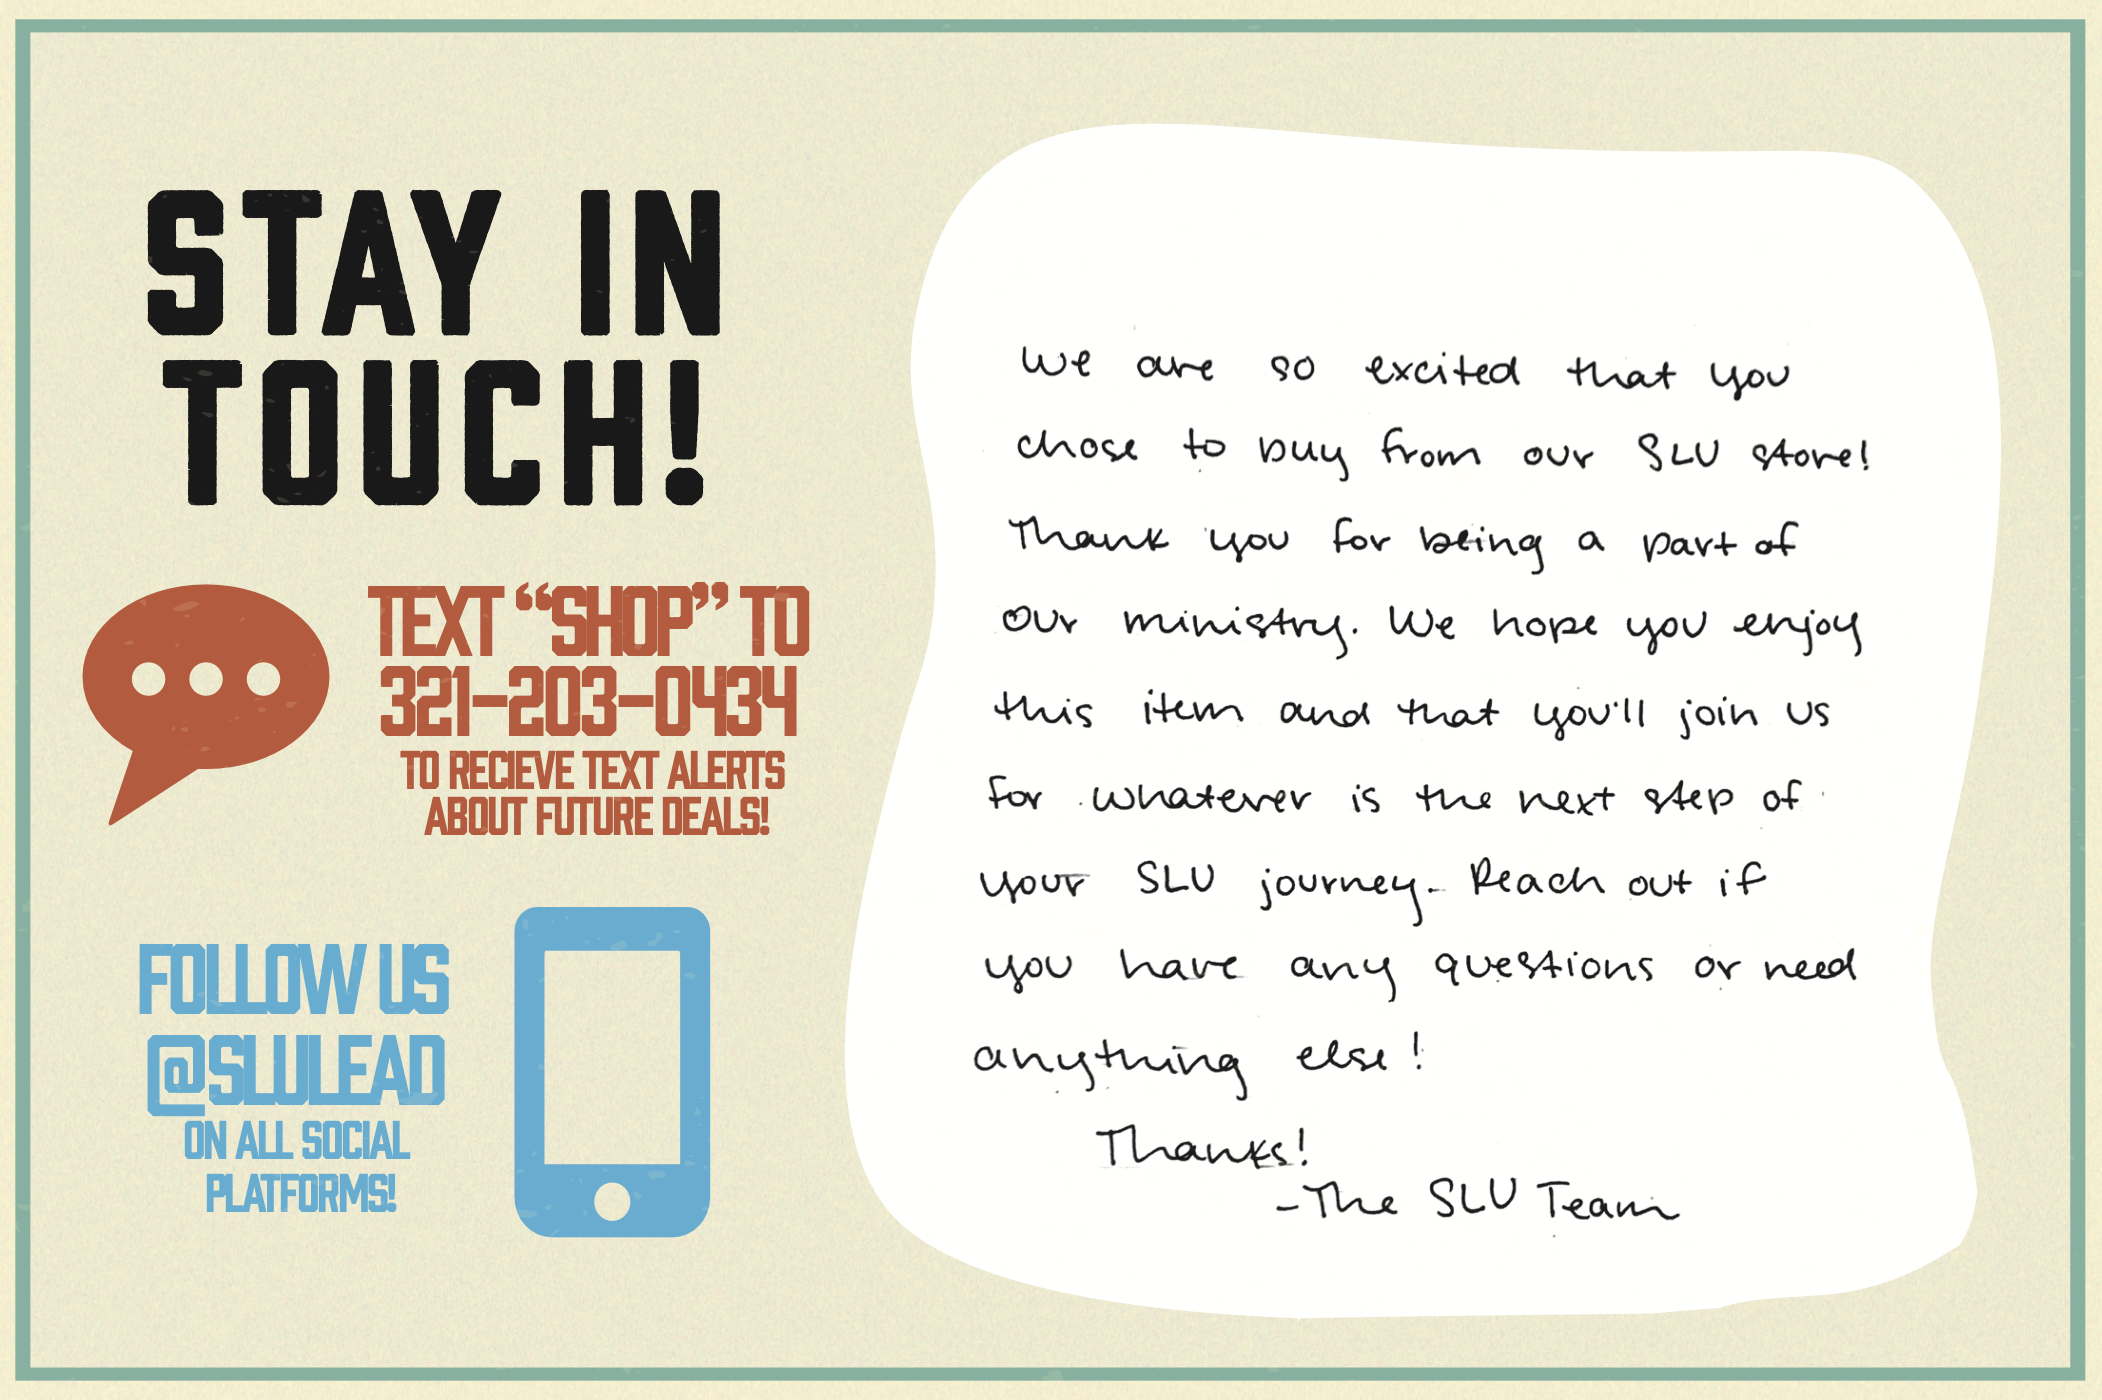 STAY IN
TOUCH!
TEXT “SHOP” TO
321-203-0434
TO RECIEVE TEXT ALERTS
ABOUT FUTURE DEALS!
FOLLOW US
@SLULEAD
ON ALL SOCIAL
PLATFORMS!
We are so excited that you
chose to buy from our SLU store!
Thank you for being a part of
our ministry. We hope you enjoy
this item and that you'll join us
for whatever is the next step of
your SLU journey. Reach out if
you have any questions or need
anything else!
Thanks!
-The SLU Team